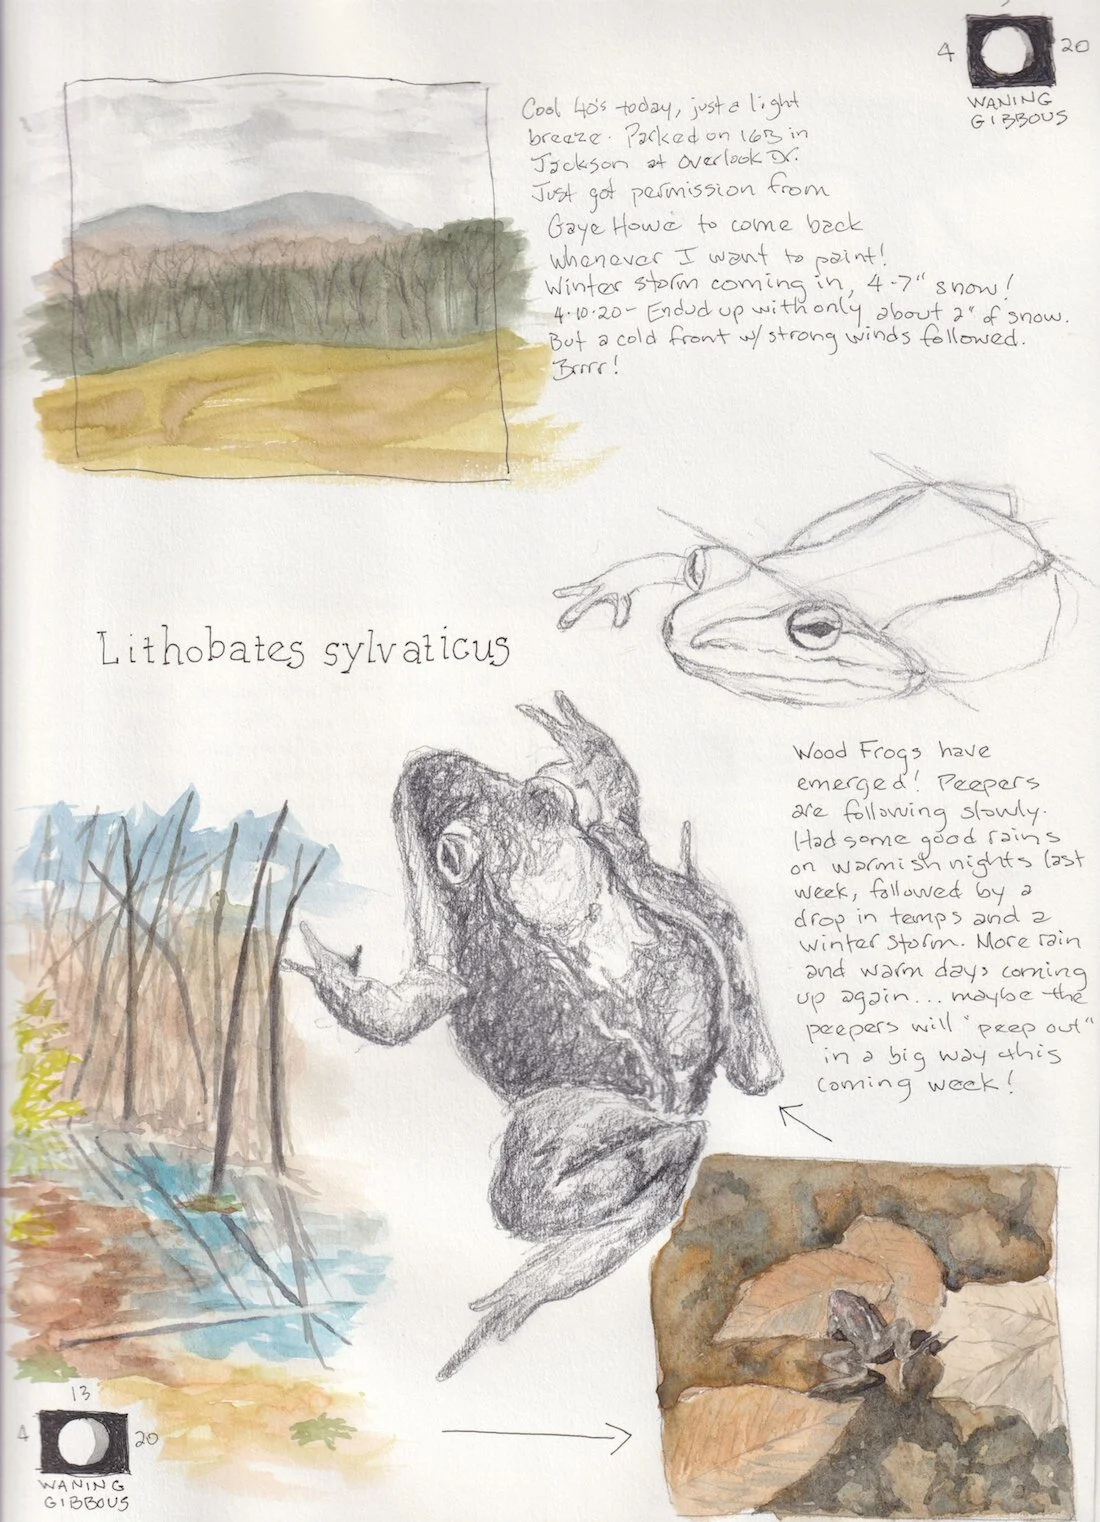 4 20
WANING
GIBBOUS
Cool 40's today, just a light
breeze. Parked on 16B in
Jackson at Overlook Dr.
Just got permission from
Gaye Howe to come back
whenever I want to paint!
Winter storm coming in, 4-7" snow!
4·10·20- Ended up with only about 2" of snow.
But a cold front w/ strong winds followed.
Brrrr!
Lithobates sylvaticus
Wood Frogs have
emerged! Peepers
are following slowly.
Had some good rains
on warmish nights last
week, followed by a
drop in temps and a
winter storm. More rain
and warm days coming
up again... maybe the
peepers will "peep out"
in a big way this
coming week!
13
4 20
WANING
GIBBOUS